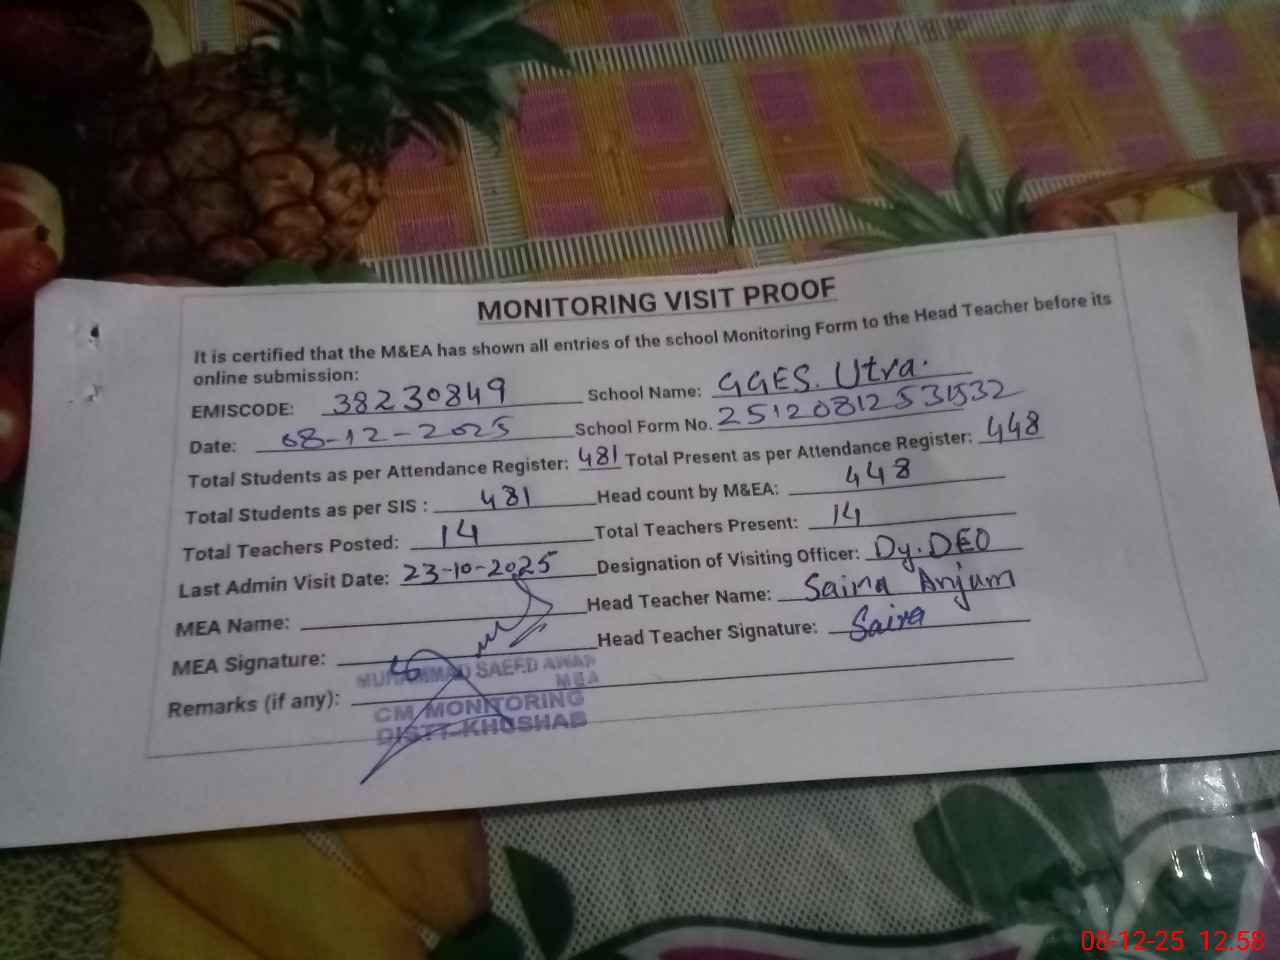 MONITORING VISIT PROOF
It is certified that the M&EA has shown all entries of the school Monitoring Form to the Head Teacher before its
online submission:
EMISCODE: 38230849 School Name: GGES. Utra.
Date: 08-12-2025 School Form No. 251208125 31532
Total Students as per Attendance Register: 481 Total Present as per Attendance Register: 448
Total Students as per SIS : 481 Head count by M&EA: 448
Total Teachers Posted: 14 Total Teachers Present: 14
Last Admin Visit Date: 23-10-2025 Designation of Visiting Officer: Dy.DEO
MEA Name: Head Teacher Name: Saira Anjum
MEA Signature: Head Teacher Signature: Saira
Remarks (if any):
MUHAMMAD SAEED AWAN
MEA
CM MONITORING
DISTT-KHUSHAB
08-12-25 12:58